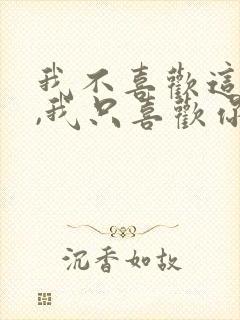 我不喜歡這
,我只喜歡你
沉香如故